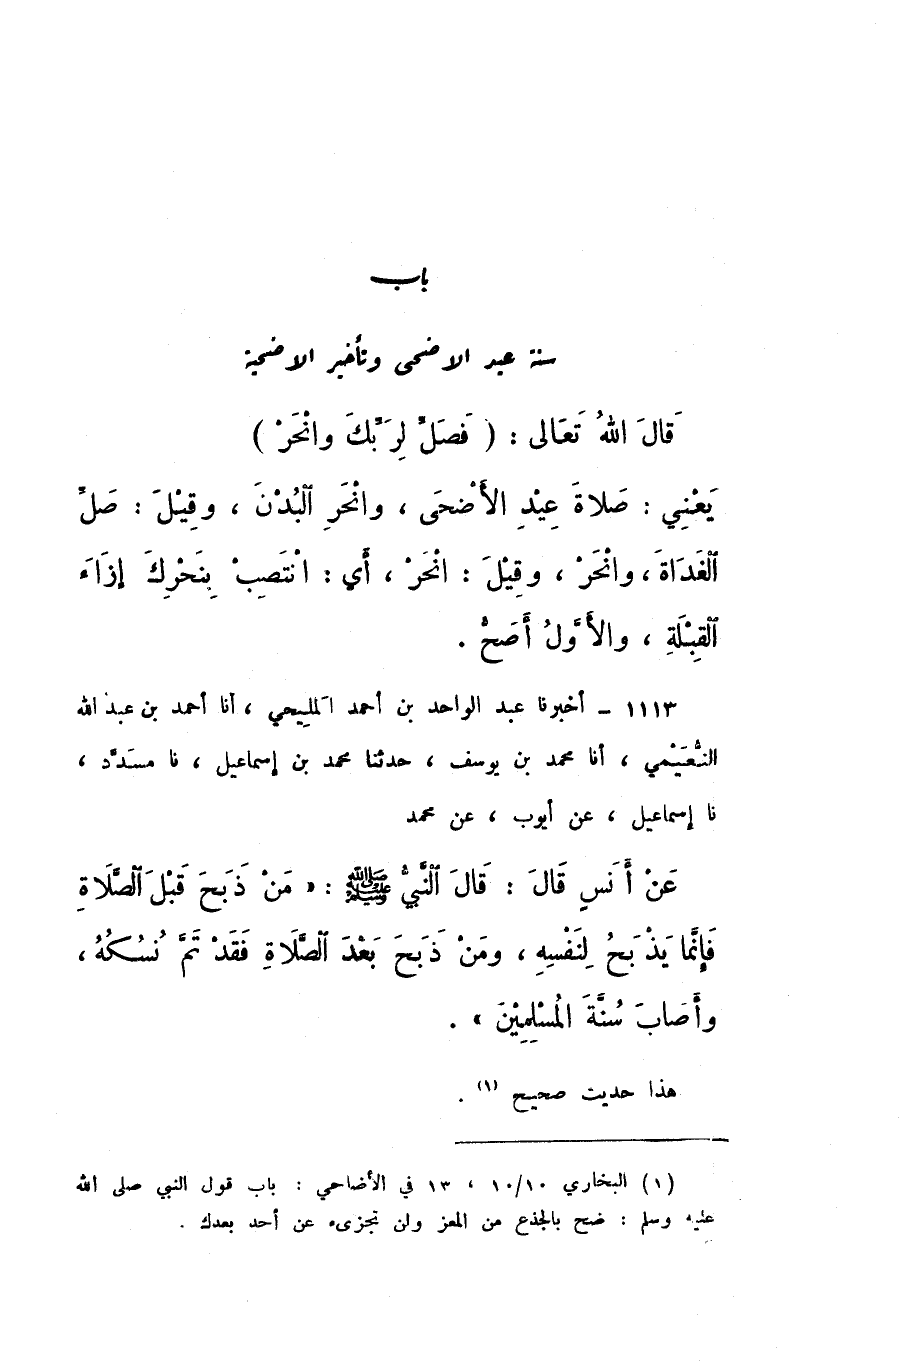 باب
سنة عيد الاضحى وتأخير الاضحية
قَالَ اللهُ تَعَالى : ( فَصَلِّ لِرَبِّكَ وانْحَرْ )
يَعْنِي : صَلاةَ عِيْدِ الأَضْحَى ، وانْحَرِ الْبُدْنَ ، وقِيْلَ : صَلِّ
الْغَدَاةَ ، وانْحَرْ ، وقِيْلَ : انْحَرْ ، أَي : انْتَصِبْ بِنَحْرِكَ إِزَاءَ
الْقِبْلَةِ ، والأَوَّلُ أَصَحُّ .
١١١٣ – أخبرنا عبد الواحد بن أحمد المَلِيحي ، أنا أحمد بن عبد الله
النُّعَيْمي ، أنا محمد بن يوسف ، حدثنا محمد بن إسماعيل ، نا مسَدَّد ،
نا إسماعيل ، عن أيوب ، عن محمد
عَنْ أَنَسٍ قَالَ : قَالَ النَّبِيُّ ﷺ : « مَنْ ذَبَحَ قَبْلَ الصَّلَاةِ
فَإِنَّمَا يَذْبَحُ لِنَفْسِهِ ، ومَنْ ذَبَحَ بَعْدَ الصَّلَاةِ فَقَدْ تَمَّ نُسُكُهُ ،
وأَصَابَ سُنَّةَ الْمُسْلِمِيْنَ » .
هذا حديث صحيح (١) .
(١) البخاري ١٠/١٠ ، ١٣ في الأضاحي : باب قول النبي صلى الله
عليه وسلم : ضح بالجذع من المعز ولن تجزىء عن أحد بعدك .